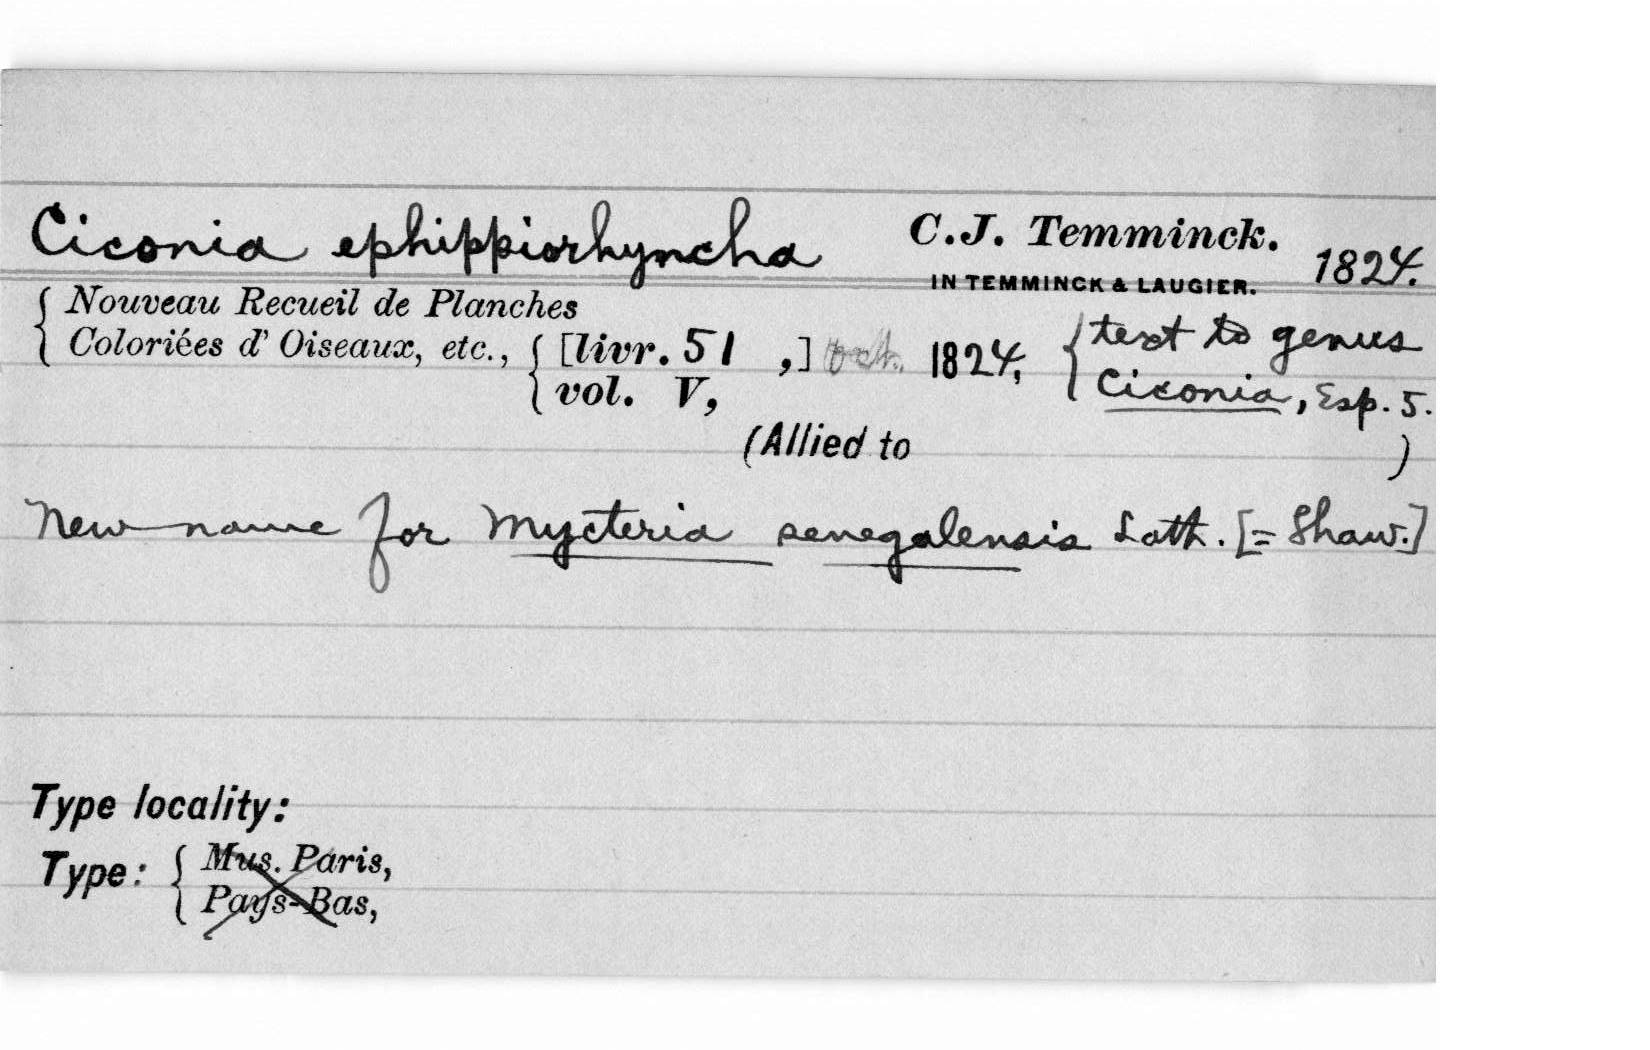 Ciconia ephippiorhyncha C.J. Temminck.
IN TEMMINCK & LAUGIER. 1824.
{ Nouveau Recueil de Planches
Coloriées d' Oiseaux, etc., { [livr. 51 ,] Oct. 1824, { text to genus
vol. V, Ciconia, Esp. 5.
(Allied to )
New name for Mycteria senegalensis Lath. [= Shaw.]
Type locality:
Type: { Mus. Paris,
Pays-Bas,